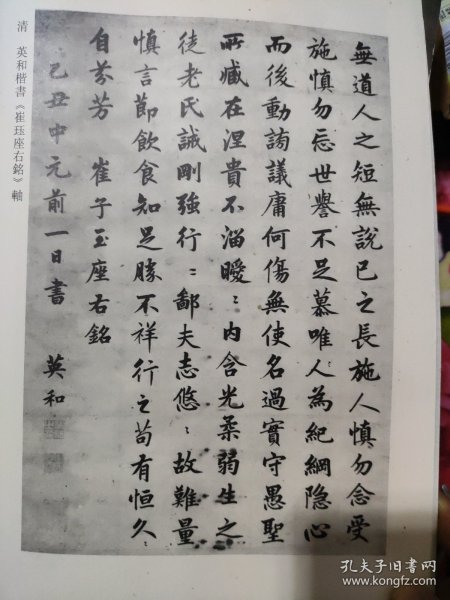 無道人之短無說己之長施人慎勿念受
施慎勿忘世譽不足慕唯人為紀綱隐心
而後動謗議庸何傷無使名過實守愚聖
所臧在涅貴不淄曖〻内含光柔弱生之
徒老氏誡剛強行〻鄙夫志悠〻故難量
慎言節飲食知足勝不祥行之苟有恒久〻
自芬芳 崔子玉座右銘
己丑中元前一日書 英和
清 英和楷書《崔珏座右銘》軸
孔夫子旧书网
www.kongfz.com